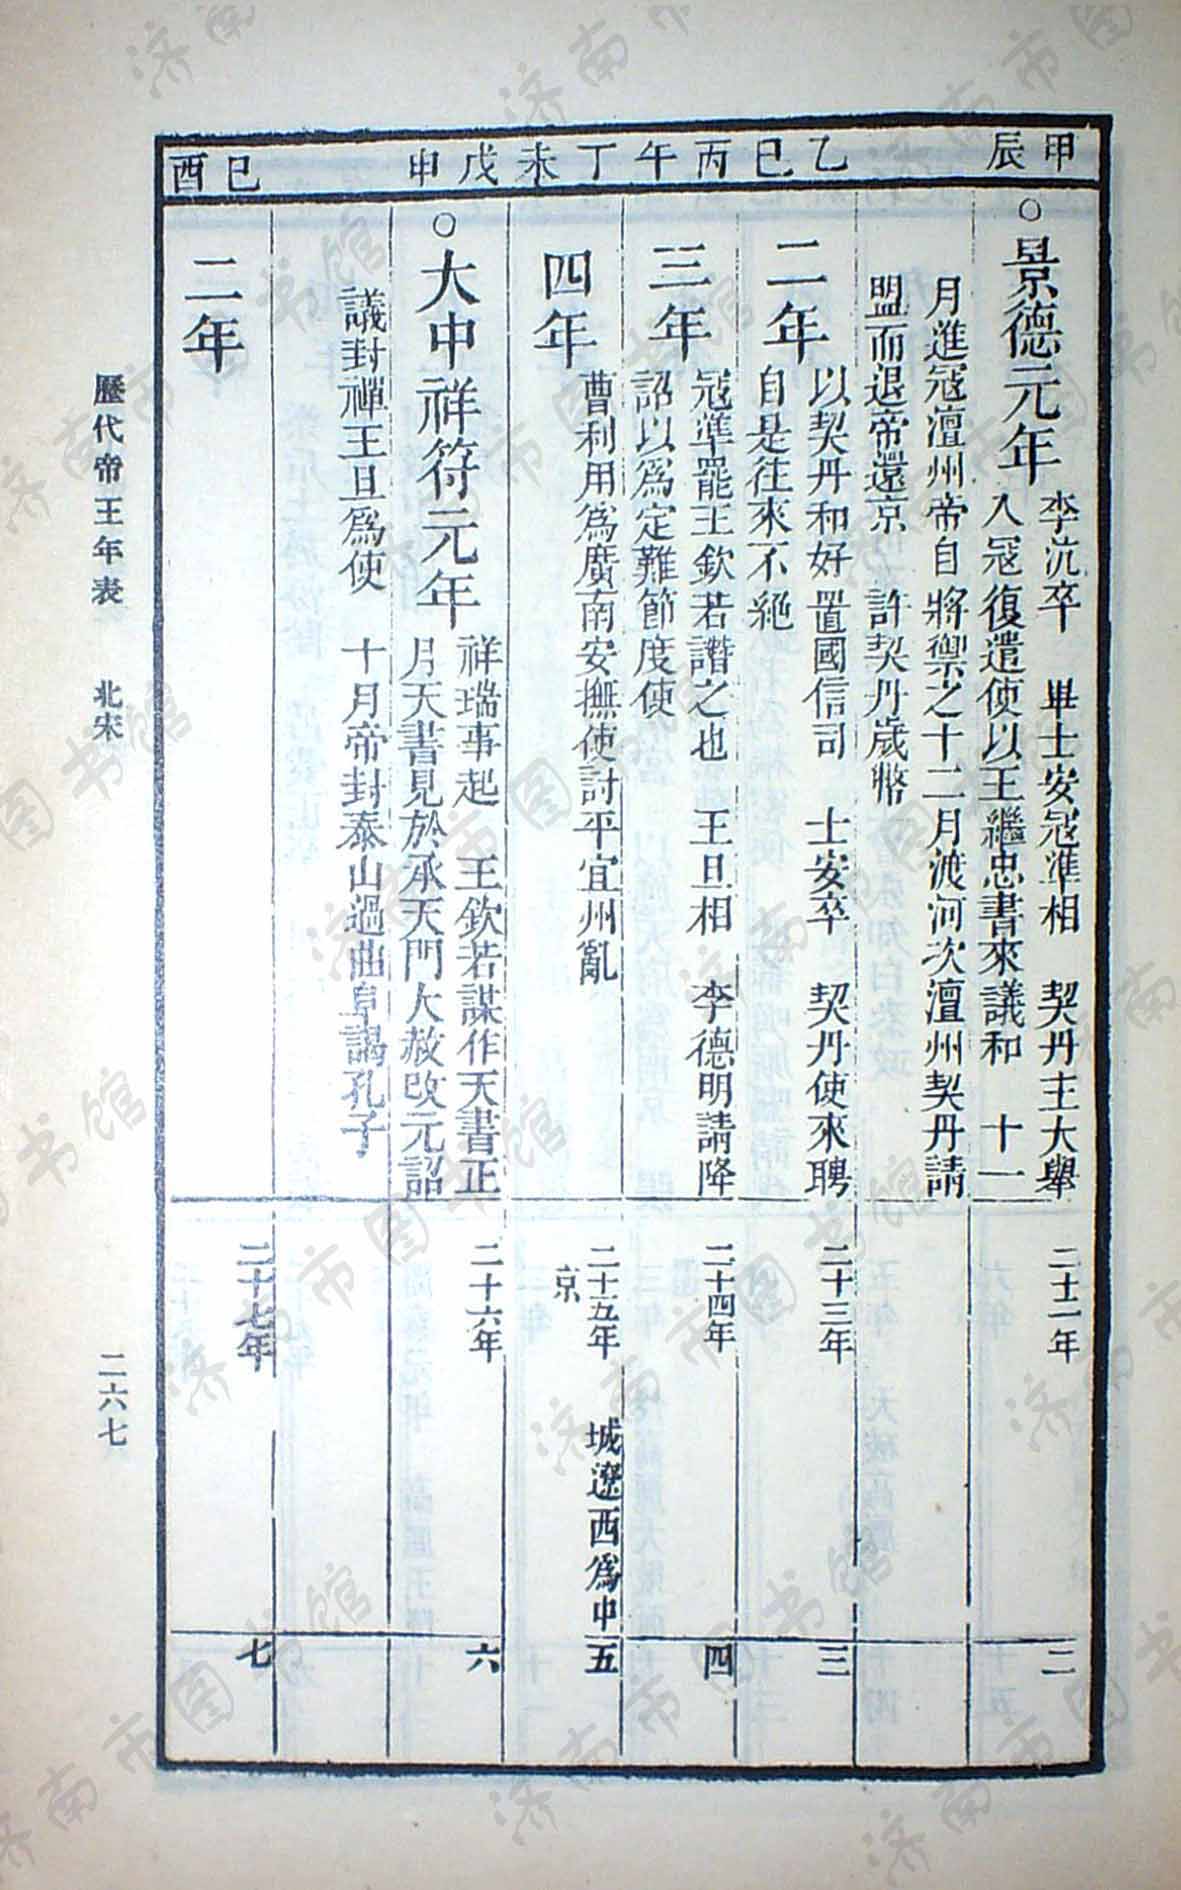 甲辰
乙巳
丙午
丁未
戊申
己酉
○景德元年
李沆卒　畢士安冦準相　契丹主大舉
入冦復遣使以王繼忠書來議和　十一
月進冦澶州帝自將禦之十二月渡河次澶州契丹請
盟而退帝還京　許契丹歲幣
二十一年
二
二年
以契丹和好置國信司　士安卒　契丹使來聘
自是往來不絕
二十三年
三
三年
冦準罷王欽若譖之也　王旦相　李德明請降
詔以爲定難節度使
二十四年
四
四年
曹利用爲廣南安撫使討平宜州亂
二十五年　城遼西爲中
京
五
○大中祥符元年
祥瑞事起　王欽若謀作天書正
月天書見於承天門大赦改元詔
議封禪王旦爲使　十月帝封泰山過曲阜謁孔子
二十六年
六
二年
二十七年
七
歷代帝王年表　北宋
二六七
济南市图书馆